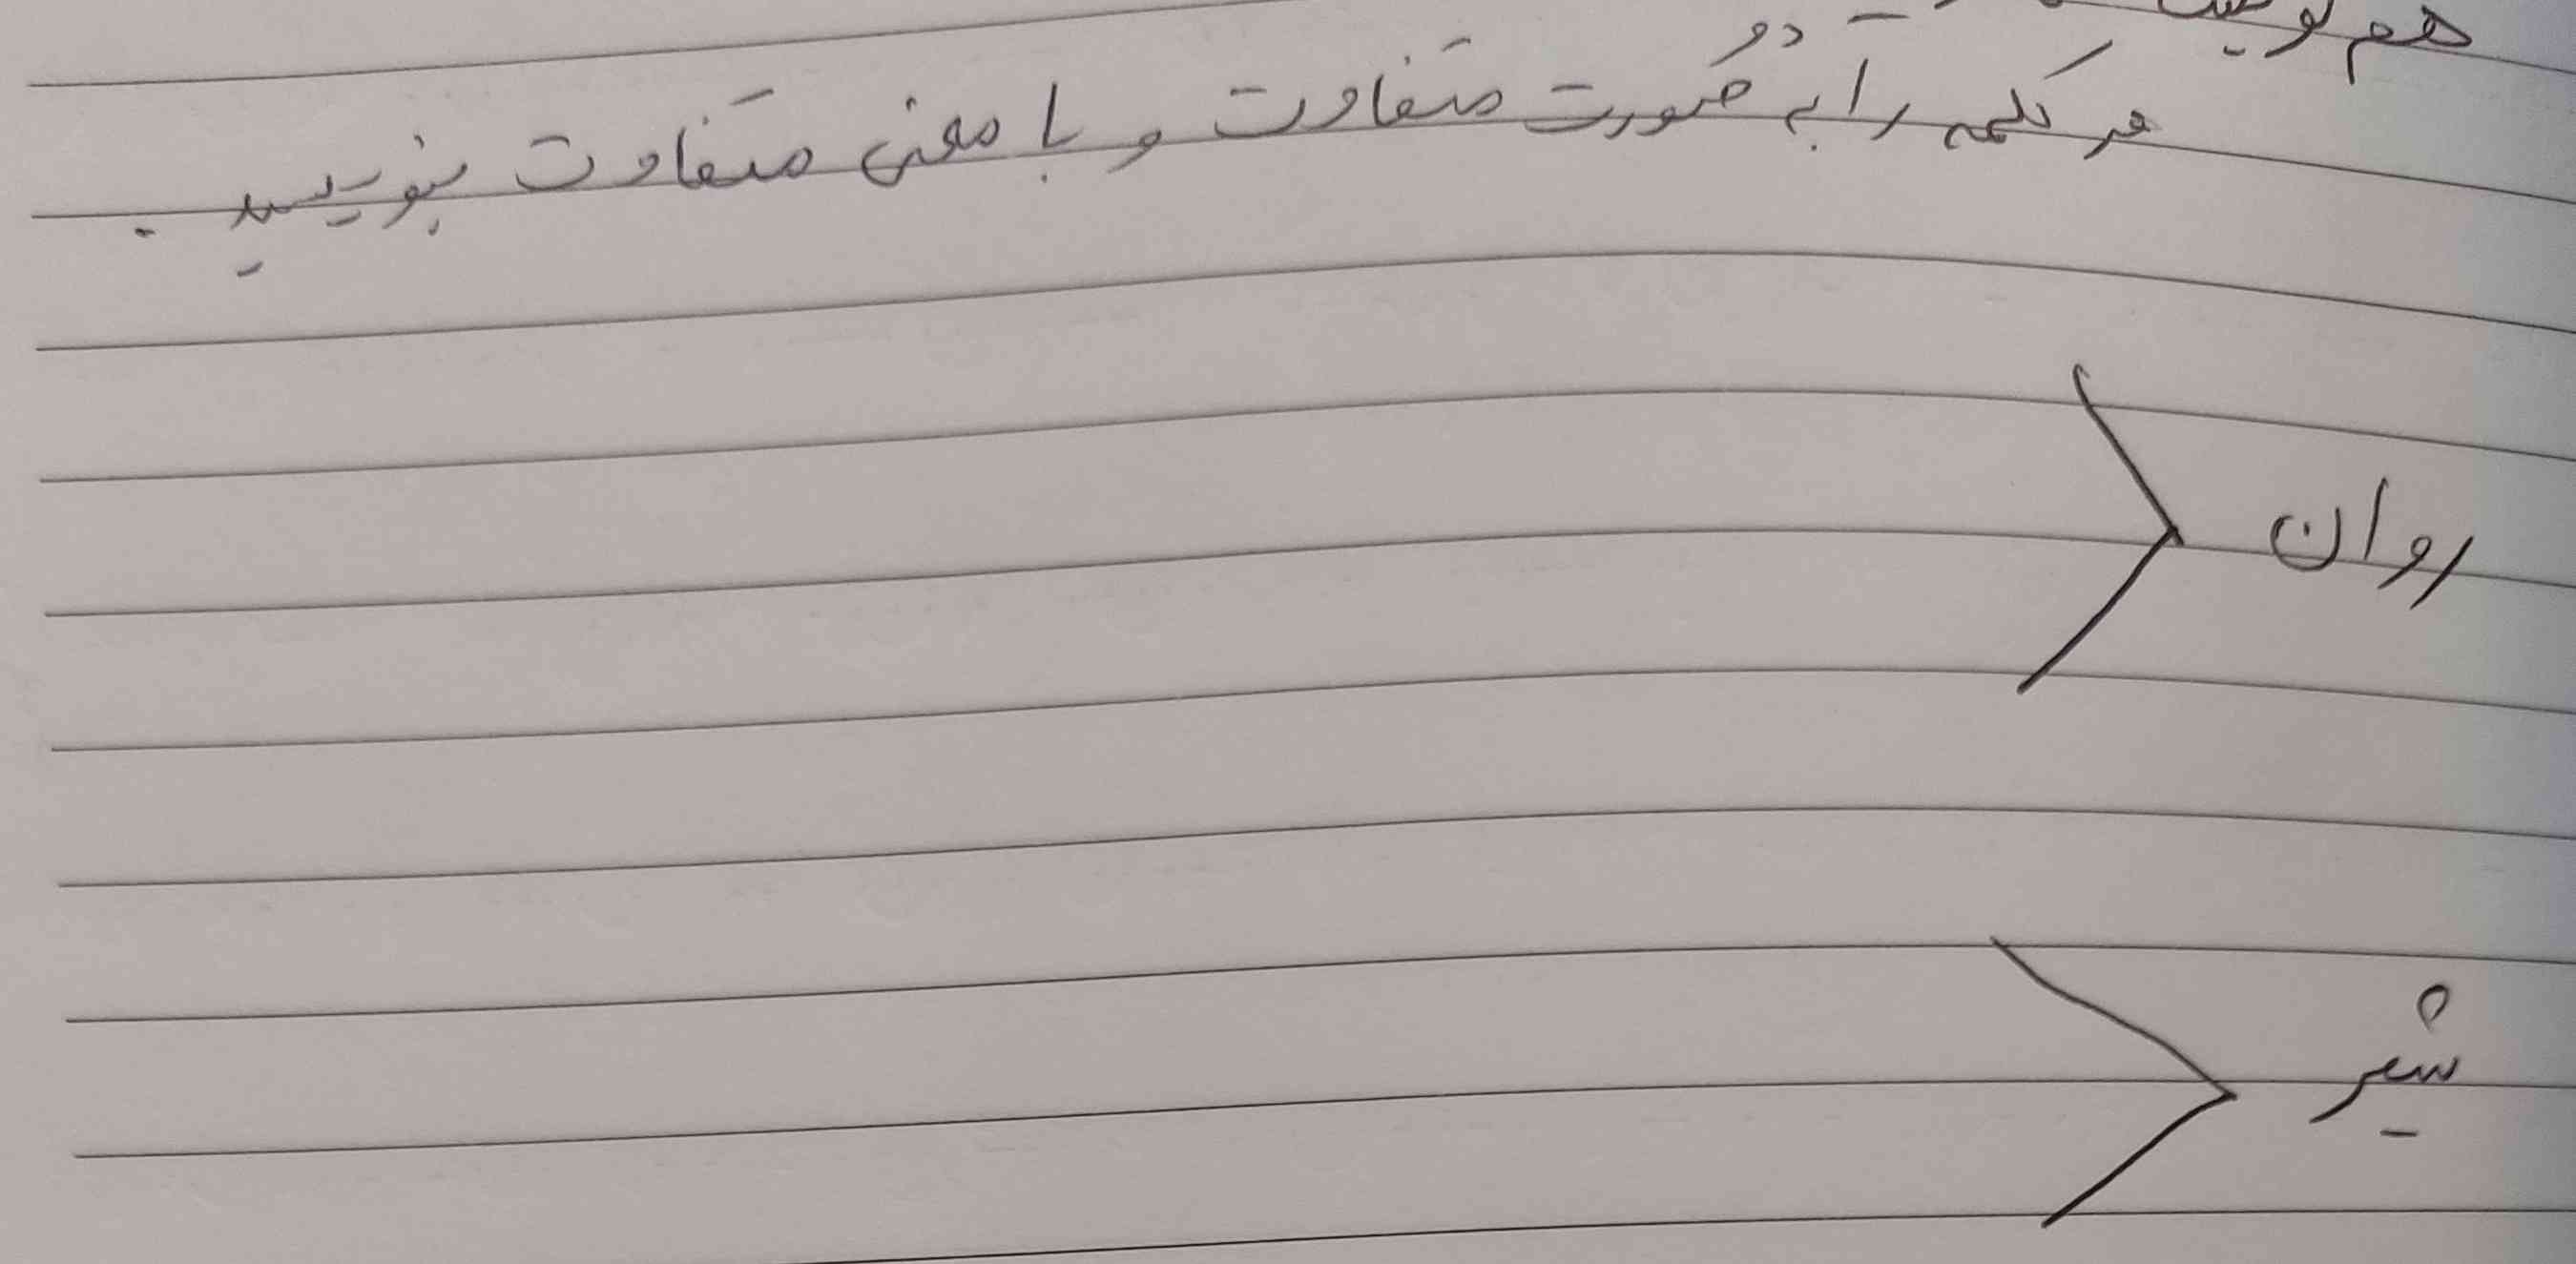 هم
هر کلمه را به دو صورت متفاوت و با معنی متفاوت بنویسید.
روان
شیر